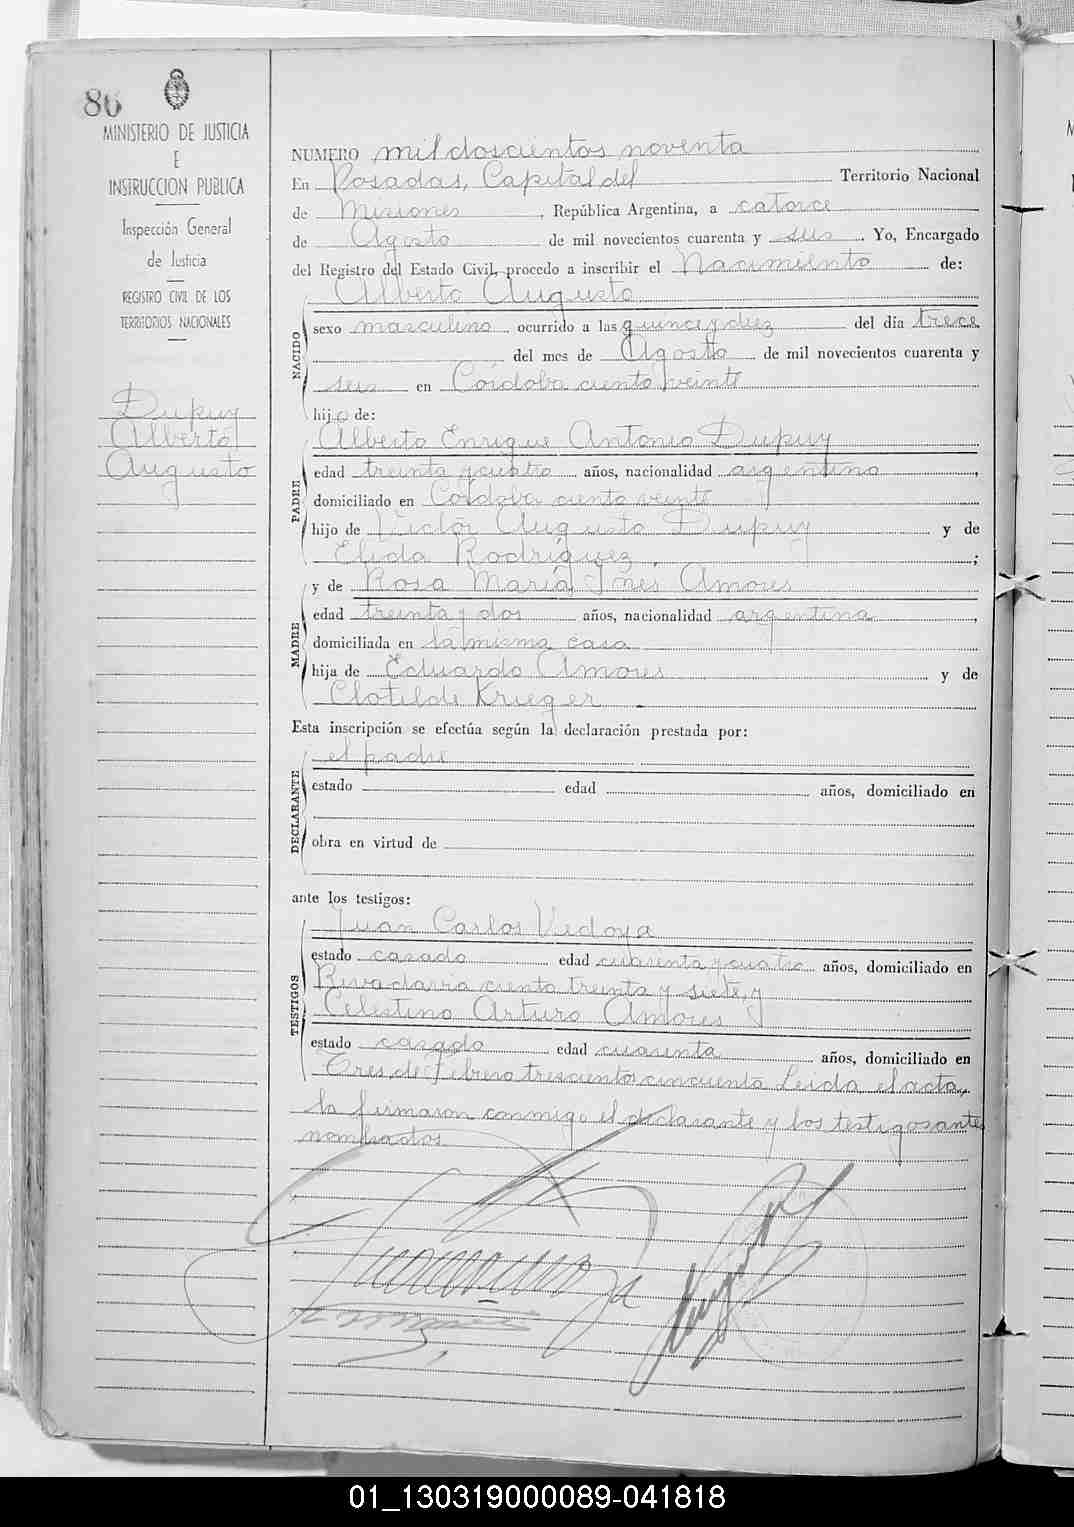 86
MINISTERIO DE JUSTICIA
E
INSTRUCCION PUBLICA
Inspección General
de Justicia
REGISTRO CIVIL DE LOS
TERRITORIOS NACIONALES
Dupuy
Alberto
Augusto
NUMERO mil doscientos noventa
En Posadas, Capital del Territorio Nacional
de Misiones, República Argentina, a catorce
de Agosto de mil novecientos cuarenta y seis. Yo, Encargado
del Registro del Estado Civil, procedo a inscribir el Nacimiento de:
NACIDO
Alberto Augusto
sexo masculino, ocurrido a las quince y diez del día trece
del mes de Agosto de mil novecientos cuarenta y
seis en Córdoba ciento veinte
hijo de:
PADRE
Alberto Enrique Antonio Dupuy
edad treinta y cuatro años, nacionalidad argentino,
domiciliado en Córdoba ciento veinte
hijo de Victor Augusto Dupuy y de
Elida Rodríguez;
MADRE
y de Rosa María Inés Amores
edad treinta y dos años, nacionalidad argentina,
domiciliada en la misma casa
hija de Eduardo Amores y de
Clotilde Krieger
Esta inscripción se efectúa según la declaración prestada por:
DECLARANTE
el padre
estado edad años, domiciliado en
obra en virtud de
ante los testigos:
TESTIGOS
Juan Carlos Vedoya
estado casado edad cuarenta y cuatro años, domiciliado en
Rivadavia ciento treinta y siete, y
Celestino Arturo Amores
estado casado edad cuarenta años, domiciliado en
Tres de Febrero trescientos cincuenta Leida el acta,
la firmaron conmigo el declarante y los testigos antes
nombrados
01_130319000089-041818